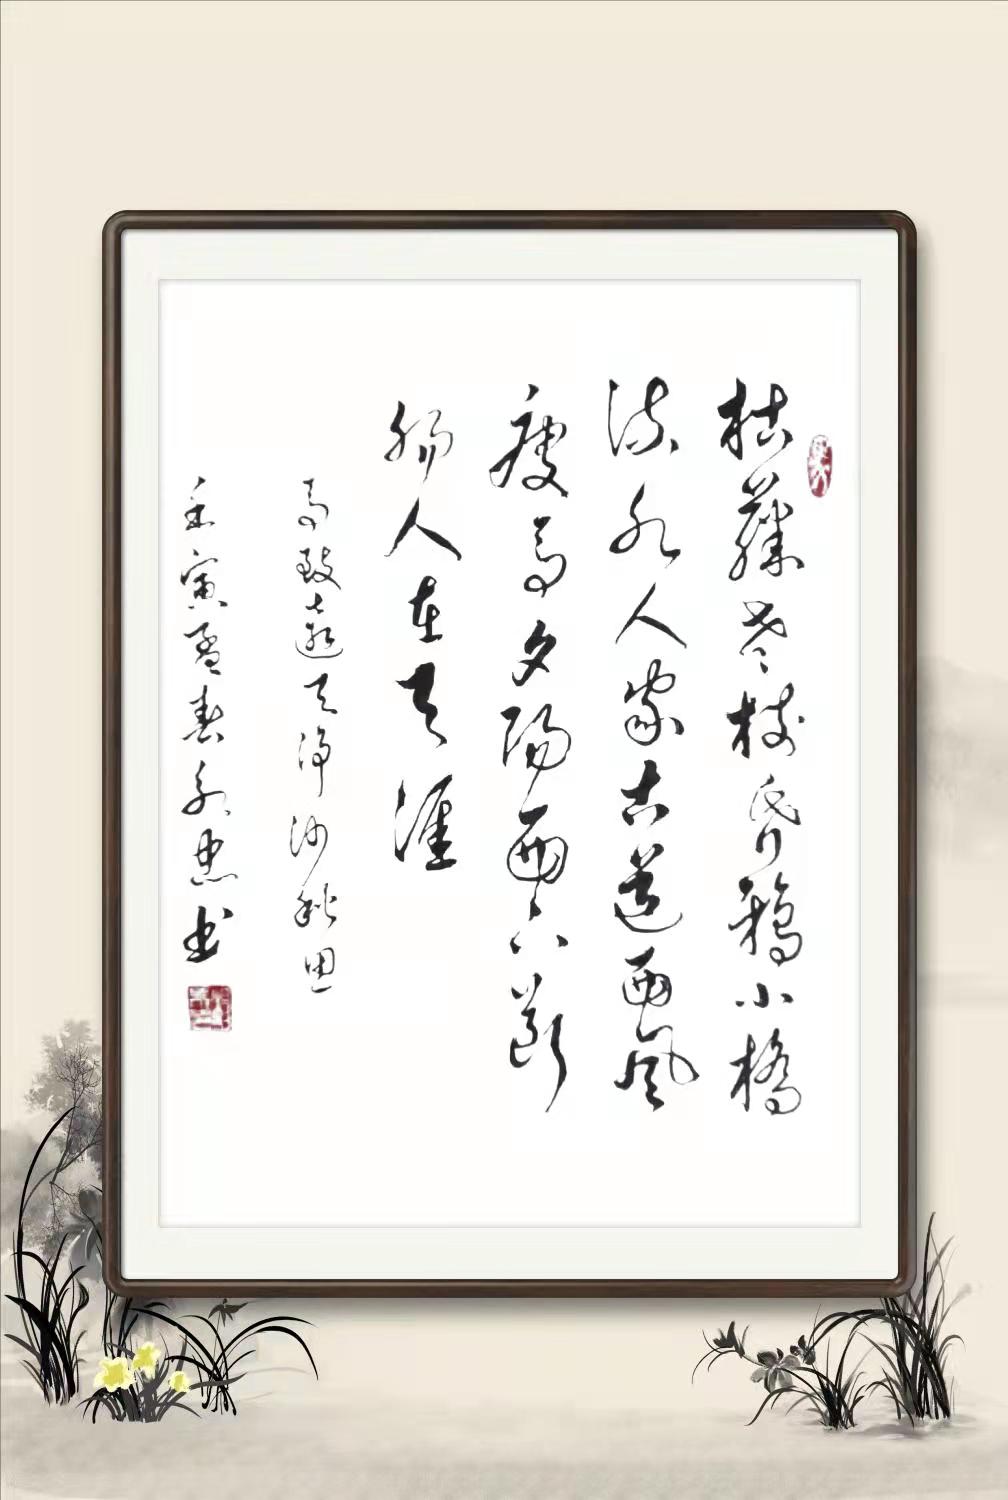 枯藤老树昏鸦小桥
流水人家古道西风
瘦马夕阳西下断
肠人在天涯
马致远天净沙秋思
壬寅孟春永忠书